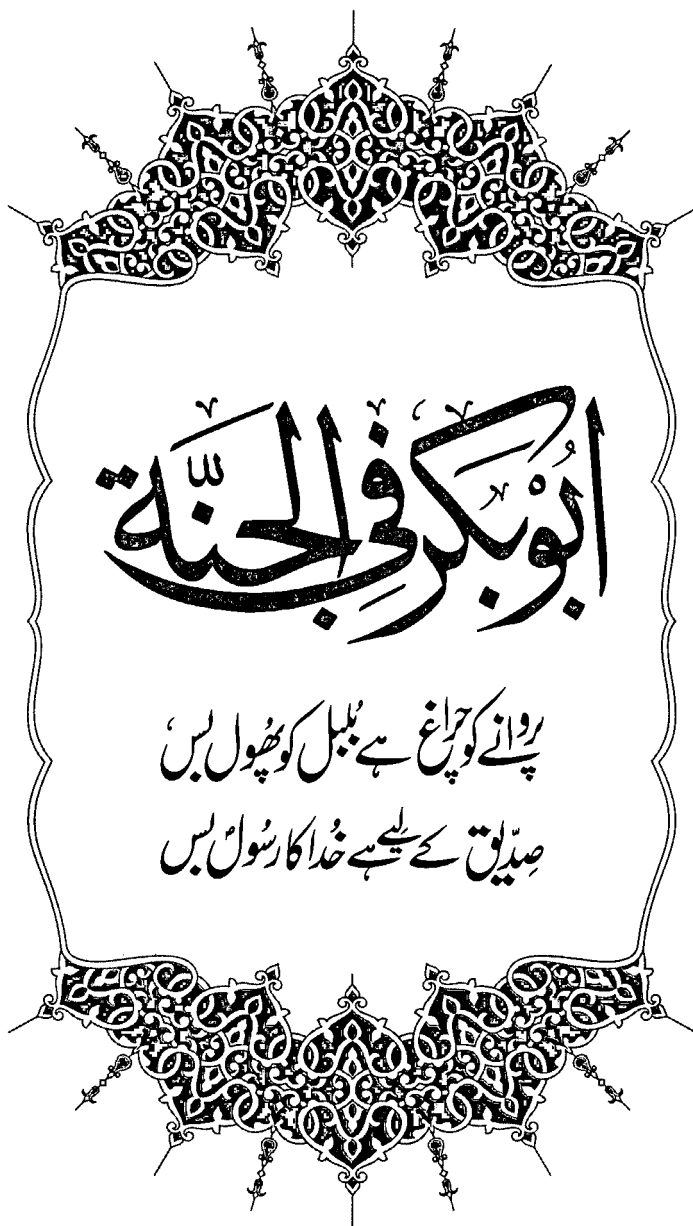 ابُوْبَکر فِی الجنّة
پروانے کو چراغ ہے بُلبل کو پھُول بس،
صِدّیق کے لیے ہے خُدا کا رسُولؐ بس